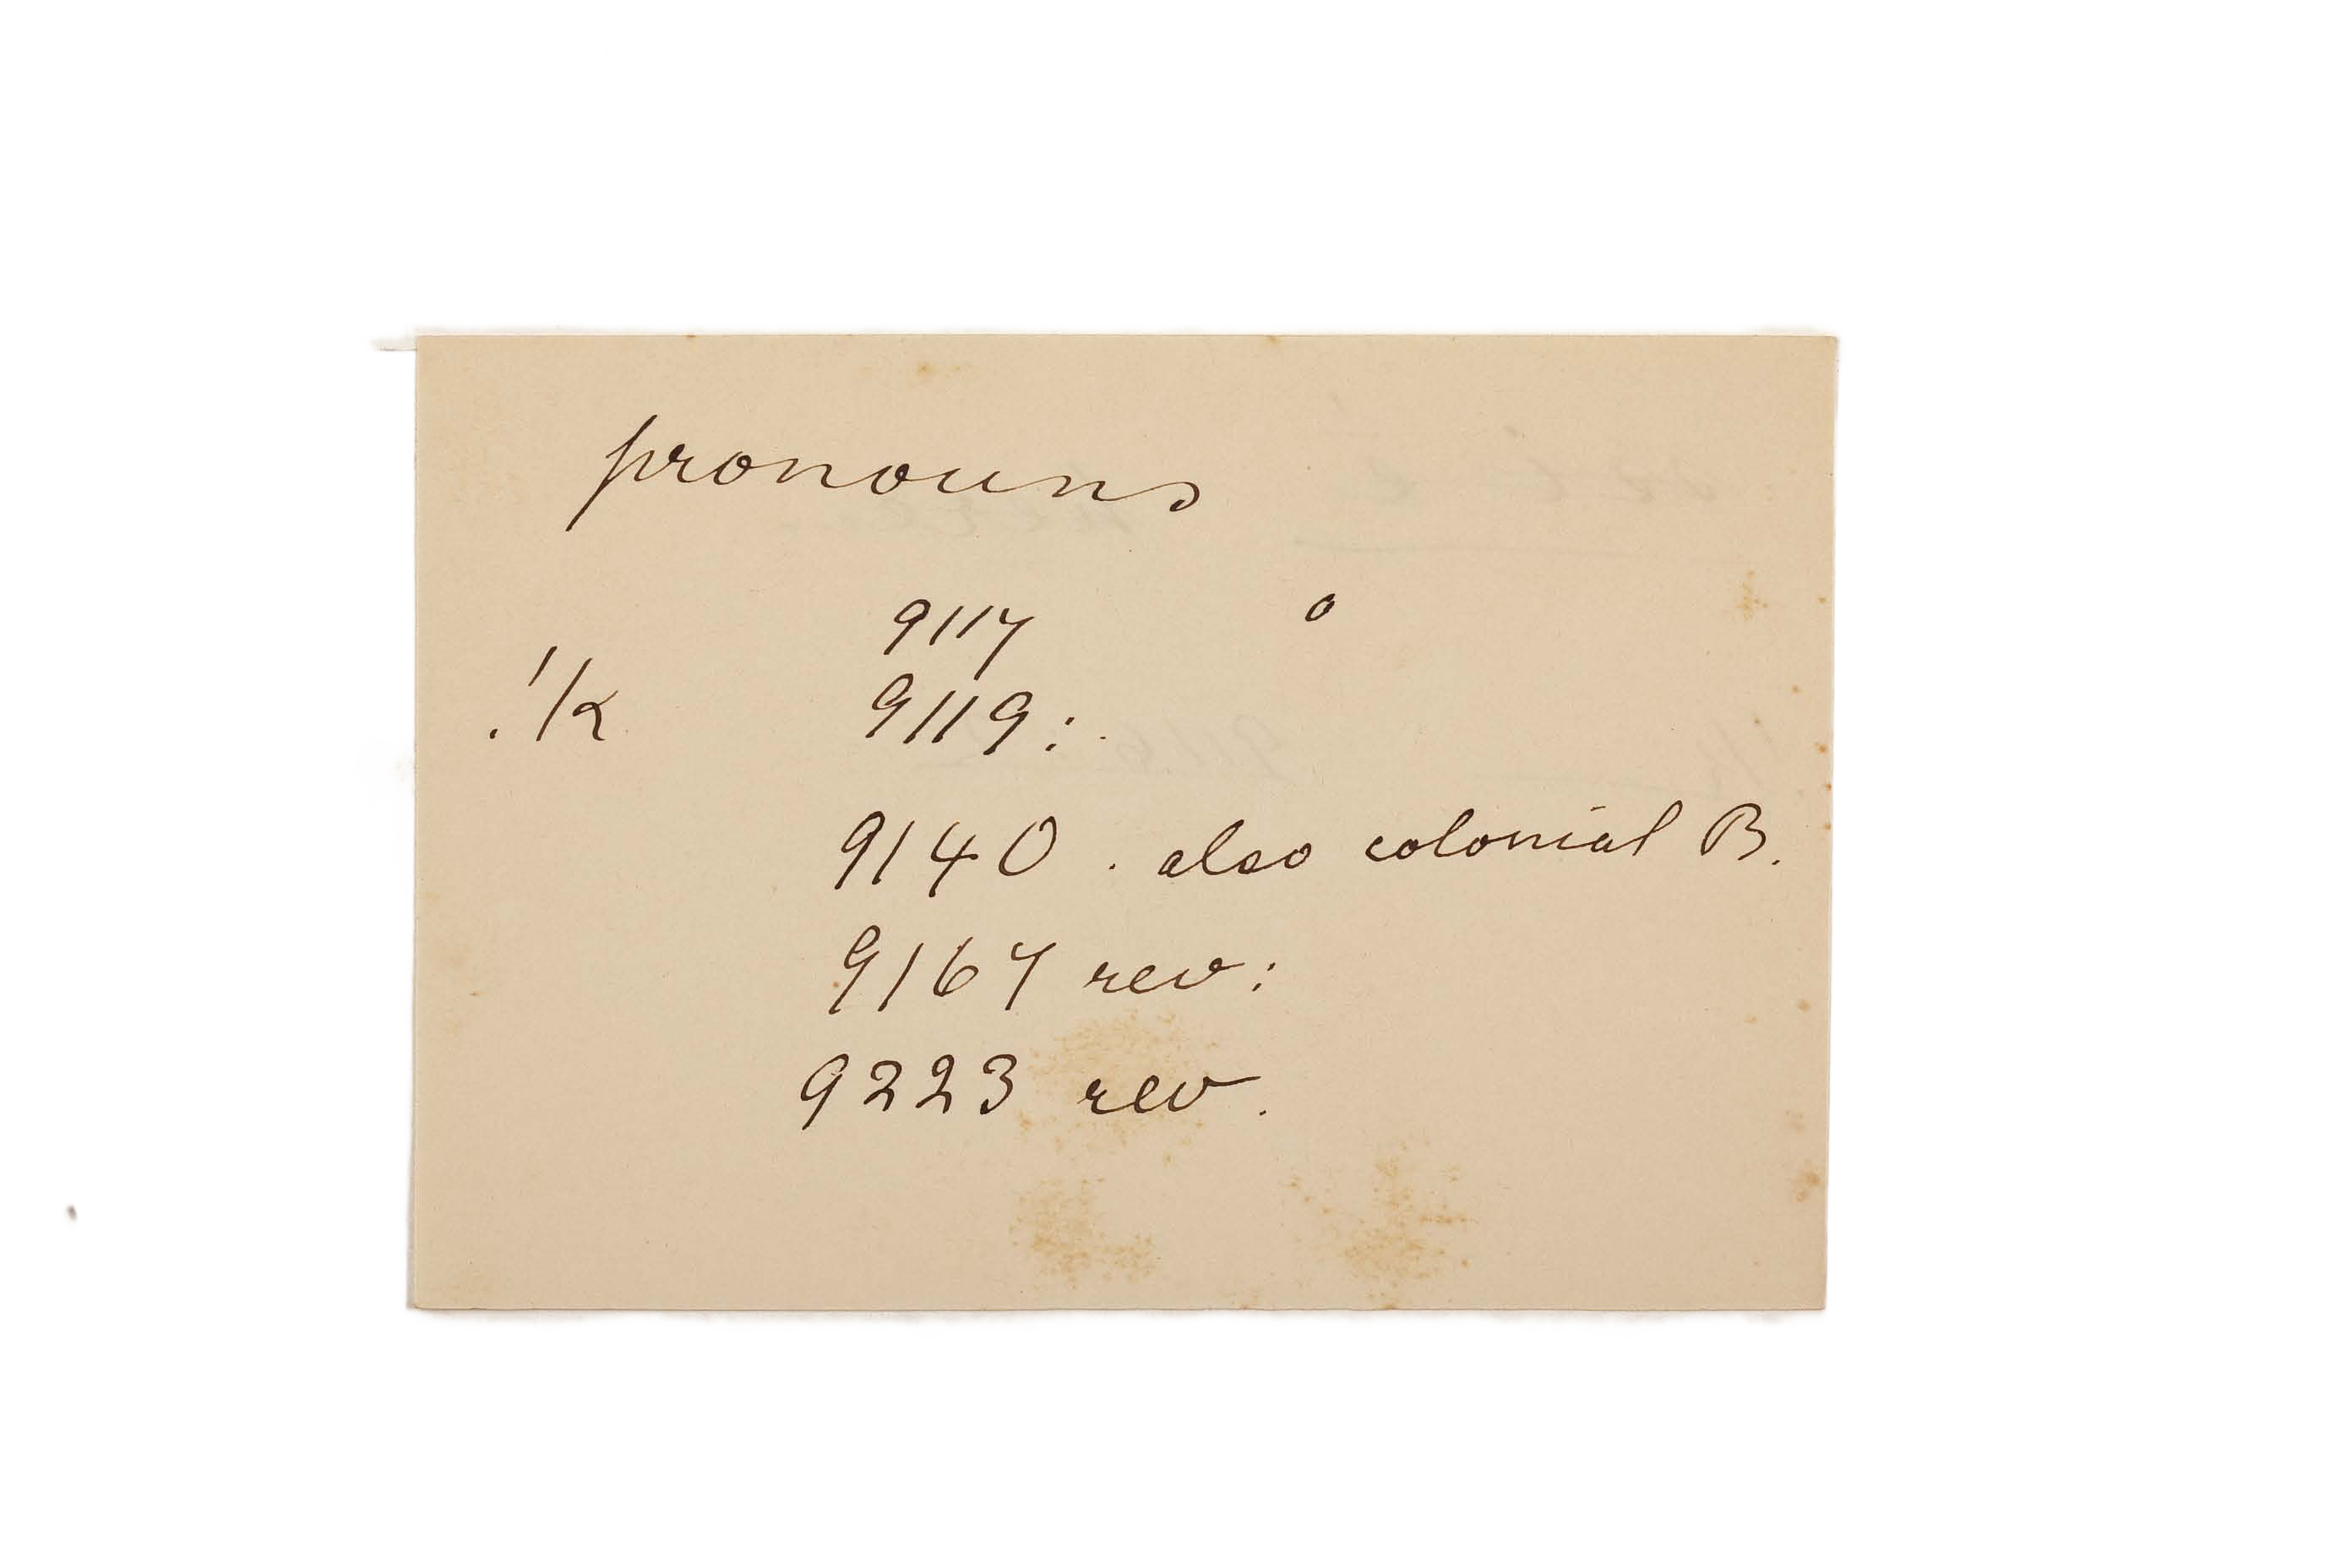 pronouns
9117
!k 9119:
9140. also colonial B.
9167 rev:
9223 rev.